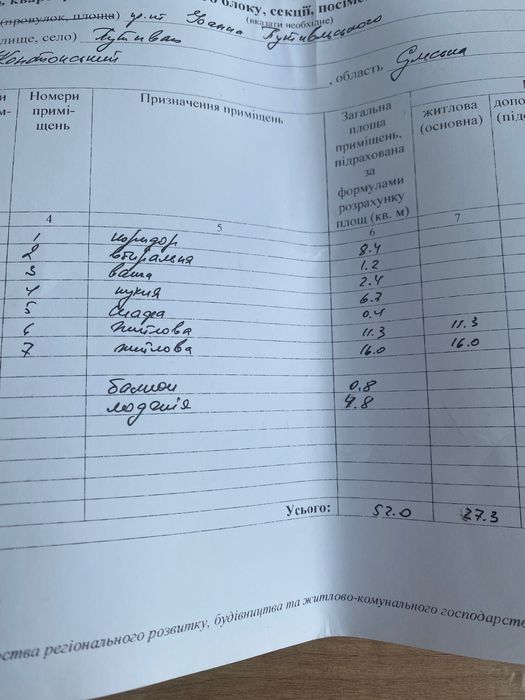 блоку, секції, посіме
(провулок, площа) Іоанна Путивльського
(вказати необхідне)
лище, село) Путивль
Конотопський , область Сумська
Номери примі-щень
Призначення приміщень
Загальна площа приміщень, підрахована за формулами розрахунку площ (кв. м)
житлова (основна)
допо (підс
4 5 6 7
1 коридор 8.4
2 вбиральня 1.2
3 ванна 2.4
4 кухня 6.7
5 шафа 0.4
6 житлова 11.3 11.3
7 житлова 16.0 16.0
балкон 0.8
лоджія 4.8
Усього: 52.0 27.3
рства регіонального розвитку, будівництва та житлово-комунального господарств